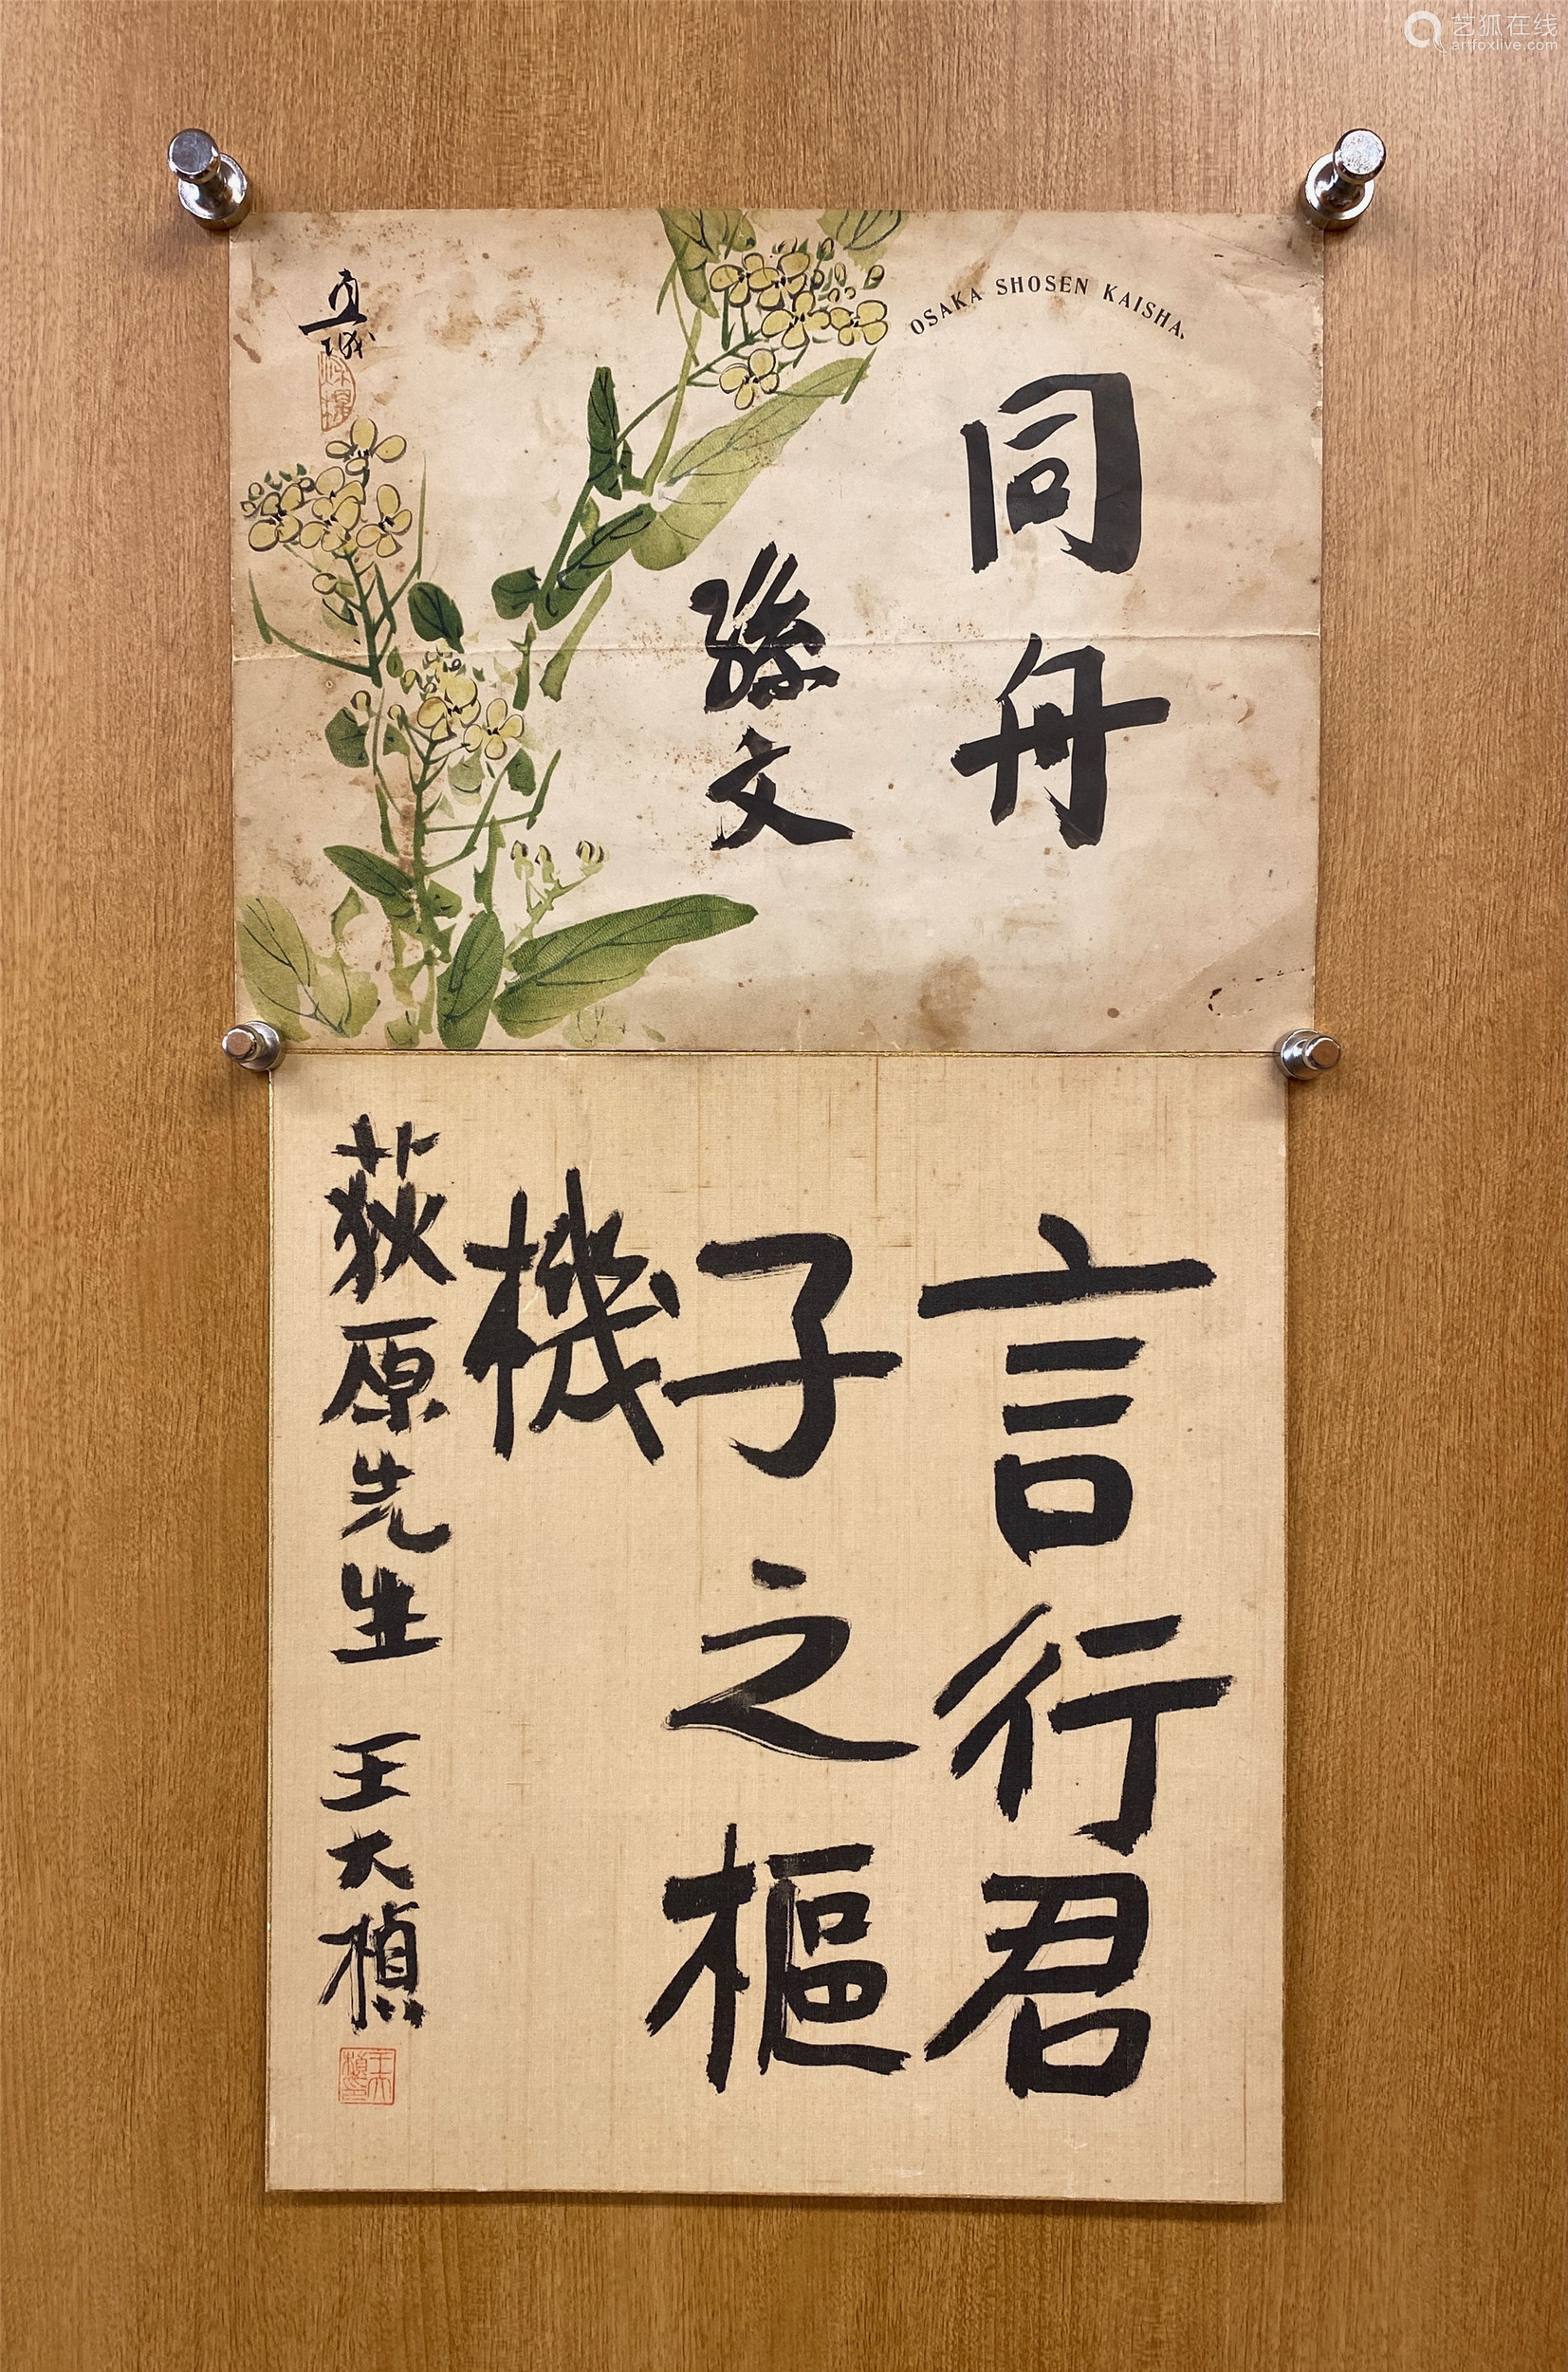 艺狐在线
artfoxlive.com
OSAKA SHOSEN KAISHA.
同舟
孫文
言行君
子之樞
機
荻原先生 王大楨